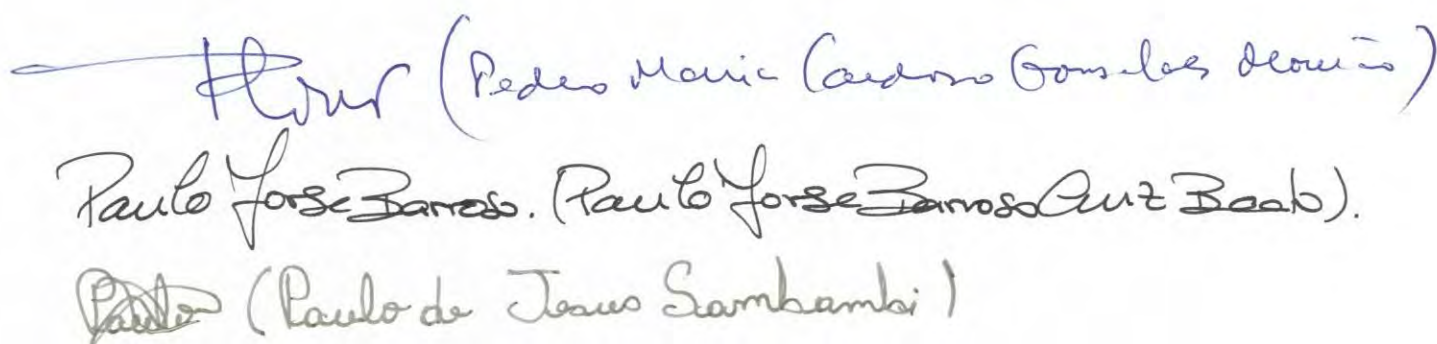 (Pedro Maria Cardoso Gonsalves Mourão)
Paulo Jorge Barroso. (Paulo Jorge Barroso Cruz Beato).
Paulo (Paulo de Jesus Sambambi)